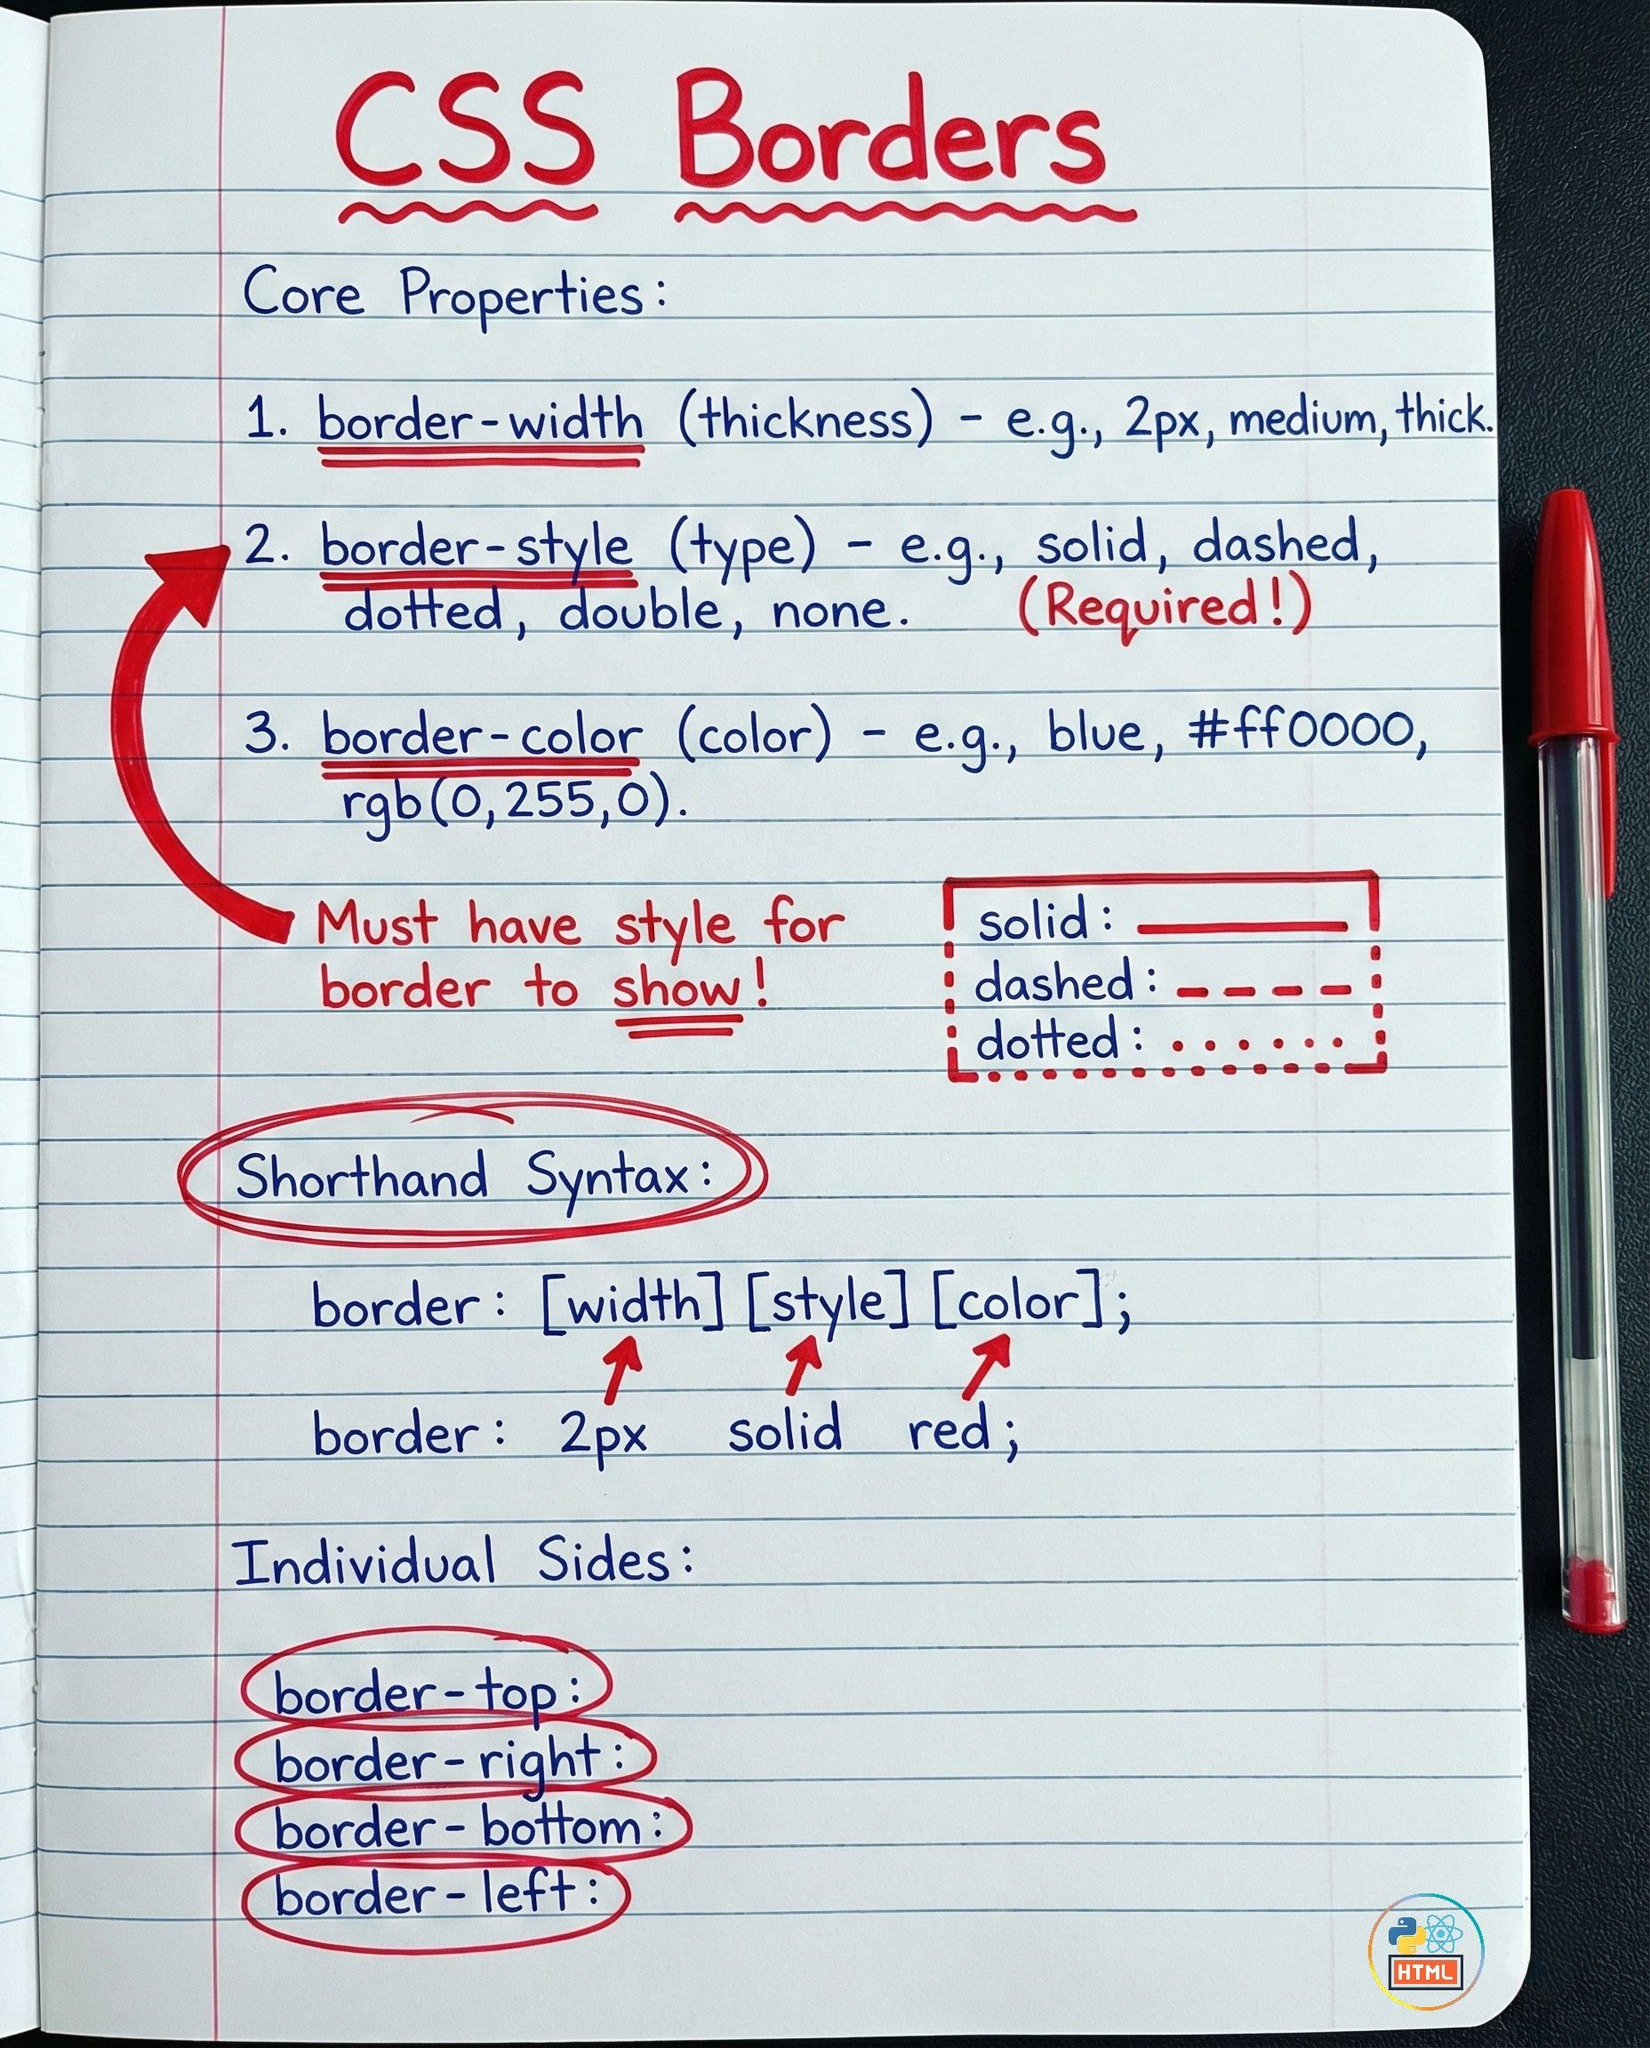 CSS Borders
Core Properties:
1. border-width (thickness) - e.g., 2px, medium, thick.
2. border-style (type) - e.g., solid, dashed,
dotted, double, none. (Required!)
3. border-color (color) - e.g., blue, #ff0000,
rgb(0,255,0).
Must have style for
border to show!
solid:
dashed:
dotted:
Shorthand Syntax:
border: [width] [style] [color];
border: 2px solid red;
Individual Sides:
border-top:
border-right:
border-bottom:
border-left:
HTML